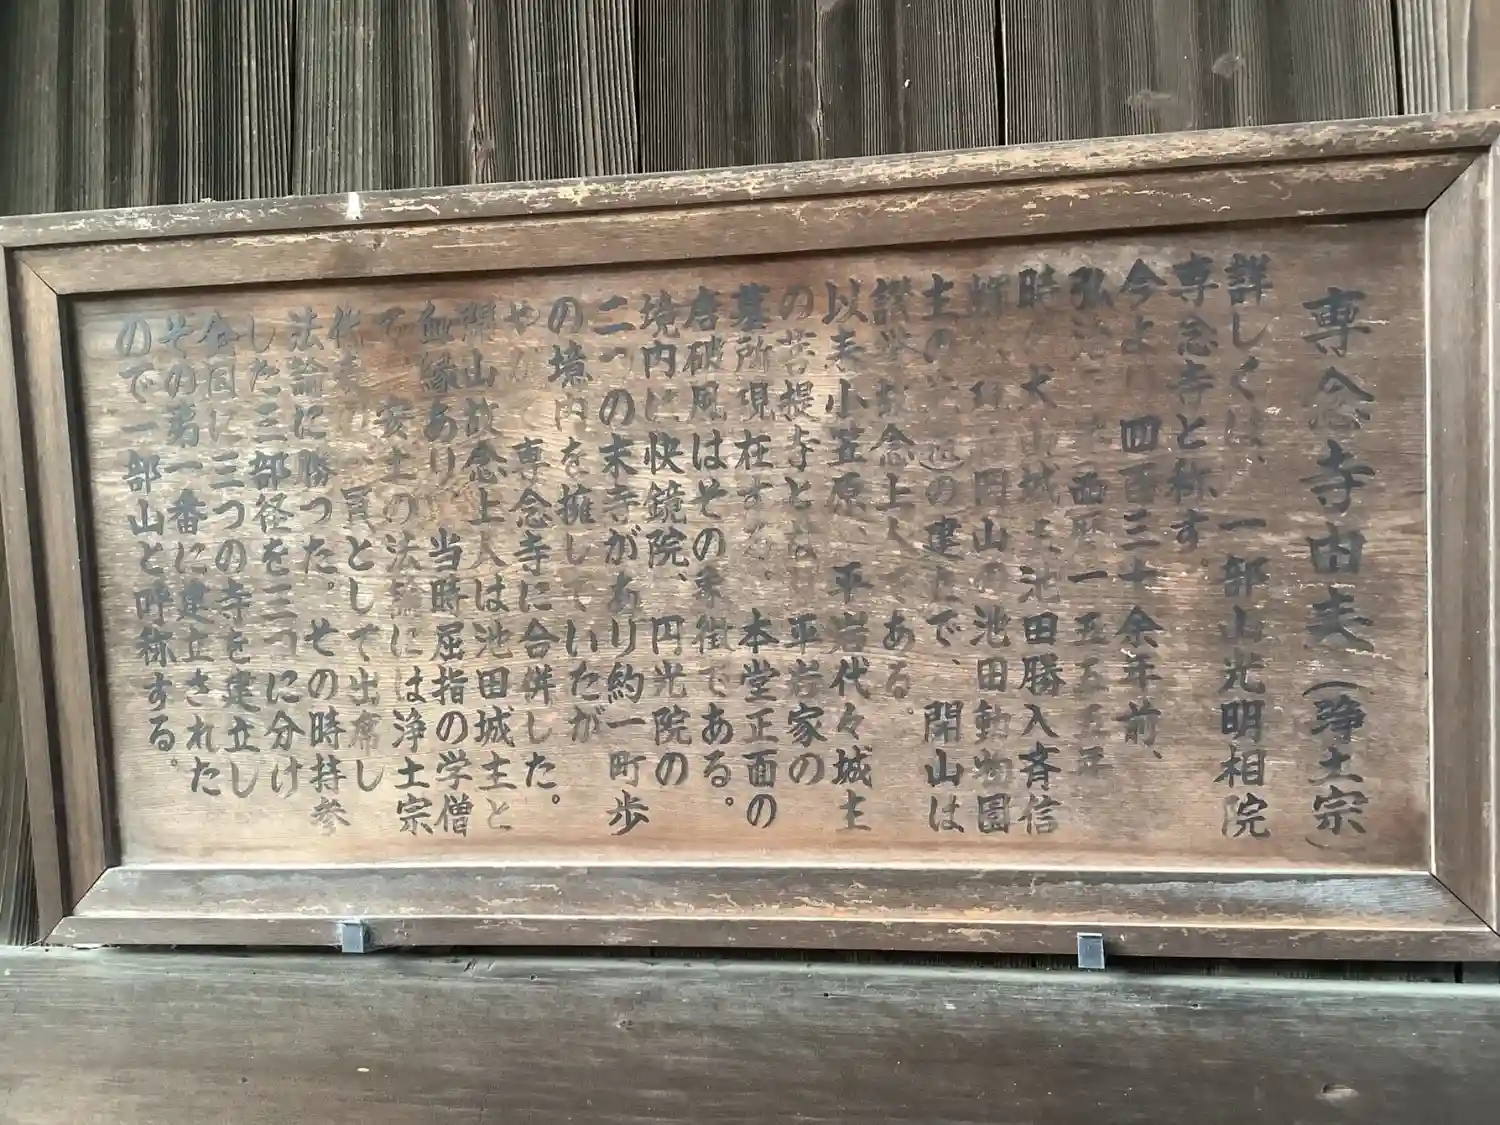 専念寺由来(浄土宗)
詳しくは、一部山光明相院
専念寺と称す。
今より四百三十余年前、
弘治 西暦一五五五年
時の犬山城主池田勝入斉信
岡山の池田動物園
主の の建立で、開山は
念上人である。
以来小笠原、平岩代々城主
の菩提寺とな 平岩家の
墓所現在する。本堂正面の
唐破風はその象徴である。
境内に快鏡院、円光院の
二つの末寺があり約一町歩
の境内を擁していたが
やがて専念寺に合併した。
開山故念上人は池田城主と
血縁あり、当時屈指の学僧
で、安土の法論には浄土宗
代表の一員として出席し
法論に勝った。その時持参
した三部径を三つに分け
全国に三つの寺を建立し
その第一番に建立された
ので一部山と呼称する。